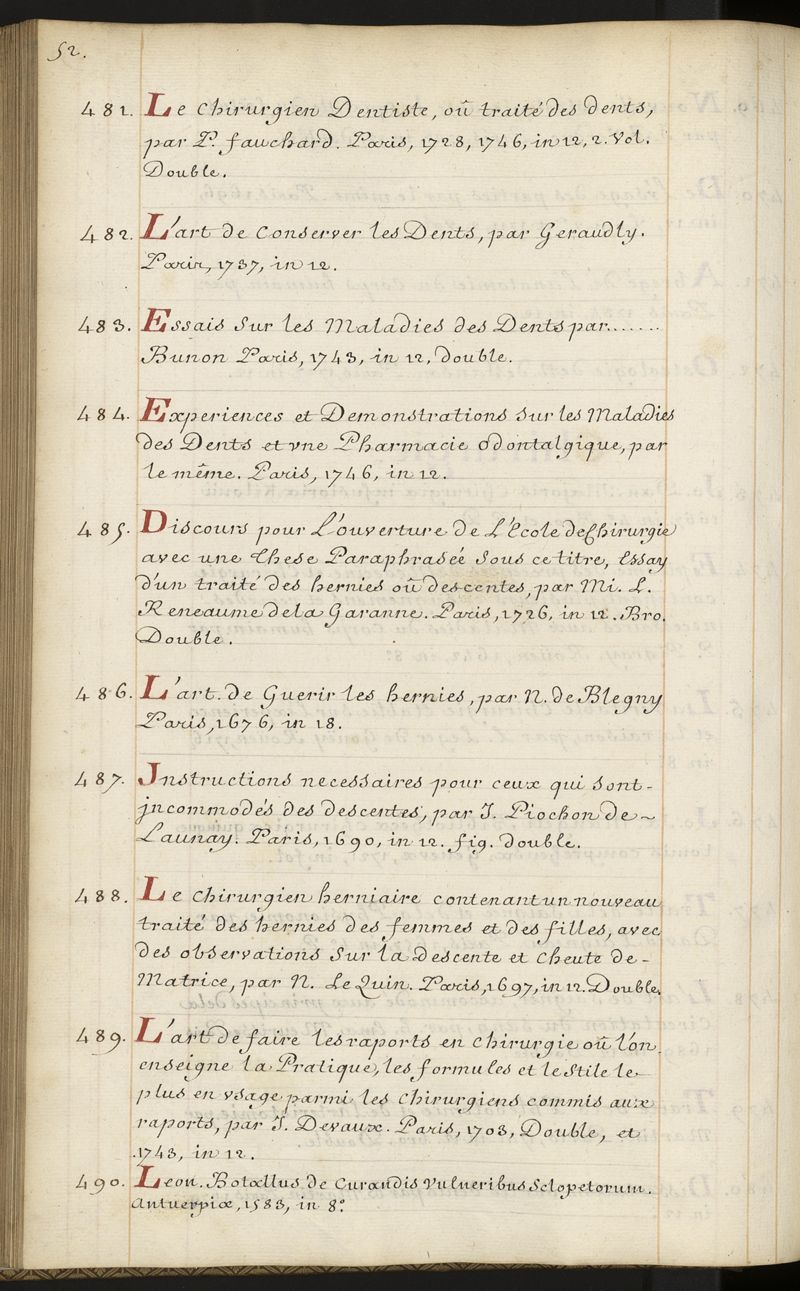 52.
481. Le Chirurgien Dentiste, oû traité des dents,
par P. fauchard. Paris, 1728, 1746, in 12, 2. Vol.
Double.
482. L'art de Conserver les Dents, par Geraudly.
Paris, 1737, in 12.
483. Essais Sur les Maladies des Dents par.......
Bunon Paris, 1743, in 12, double.
484. Experiences et Demonstrations Sur les Maladies
des Dents et vne Pharmacie Odontalgique, par
le même. Paris, 1746, in 12.
485. Discours pour L'ouverture de L'Ecole de Chirurgie
avec une These Paraphraseé Sous ce titre, Essay
d'un traité des hernies oû descentes, par Mi. L.
Reneaume de la Garanne. Paris, 1726, in 12. Bro.
Double.
486. L'art de Guerir les hernies, par N. de Blegny
Paris, 1676, in 18.
487. Instructions necessaires pour ceux qui Sont-
jncommodés des descentes, par J. Piochon de~
Launay. Paris, 1690, in 12. fig. double.
488. Le Chirurgien herniaire contenant un nouveau
traité des hernies des femmes et des filles, avec
des observations Sur la Descente et Cheute de-
Matrice, par N. Le Quin. Paris, 1697, in 12. Double.
489. L'art de faire les raports en Chirurgie oû l'on
enseigne la Pratique, les formules et le Stile le-
plus en vsage parmi les Chirurgiens commis aux
raports, par J. Devaux. Paris, 1703, Double, et
1743, in 12.
490. Leon. Botallus de Curandis Vulneribus Sclopetorum.
Antuerpiæ, 1583, in 8º